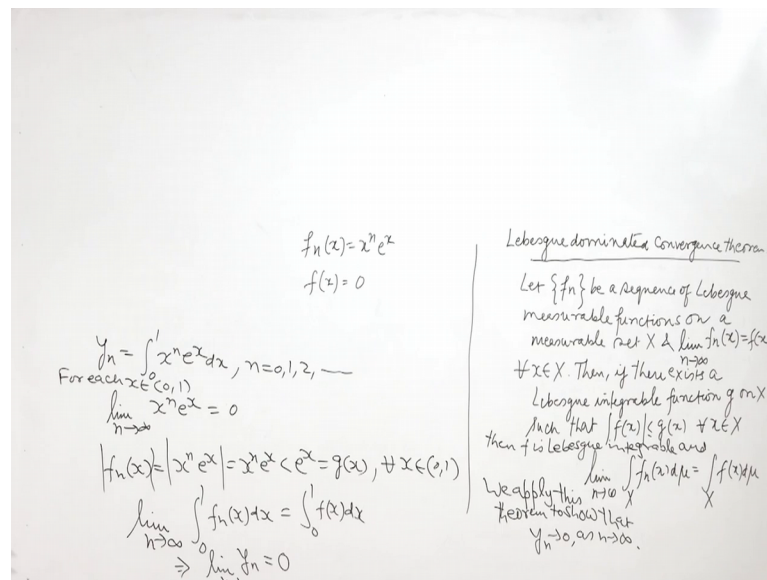 fₙ(x) = xⁿeˣ
f(x) = 0
yₙ = ∫₀¹ xⁿeˣdx, n=0,1,2,——
For each x∈(0,1)
lim n→∞ xⁿeˣ = 0
|fₙ(x)| = |xⁿeˣ| = xⁿeˣ < eˣ = g(x), ∀ x∈(0,1)
lim n→∞ ∫₀¹ fₙ(x)dx = ∫₀¹ f(x)dx
⇒ lim n→∞ yₙ = 0
Lebesgue dominated convergence theorem
Let {fn} be a sequence of Lebesgue
measurable functions on a
measurable set X & lim n→∞ fn(x)=f(x
∀ x∈X. Then, if there exists a
Lebesgue integrable function g on X
such that |f(x)|≤g(x) ∀ x∈X
then f is Lebesgue integrable and
lim n→∞ ∫X fn(x)dμ = ∫X f(x)dμ
We apply this
theorem to show that
yn→0, as n→∞.